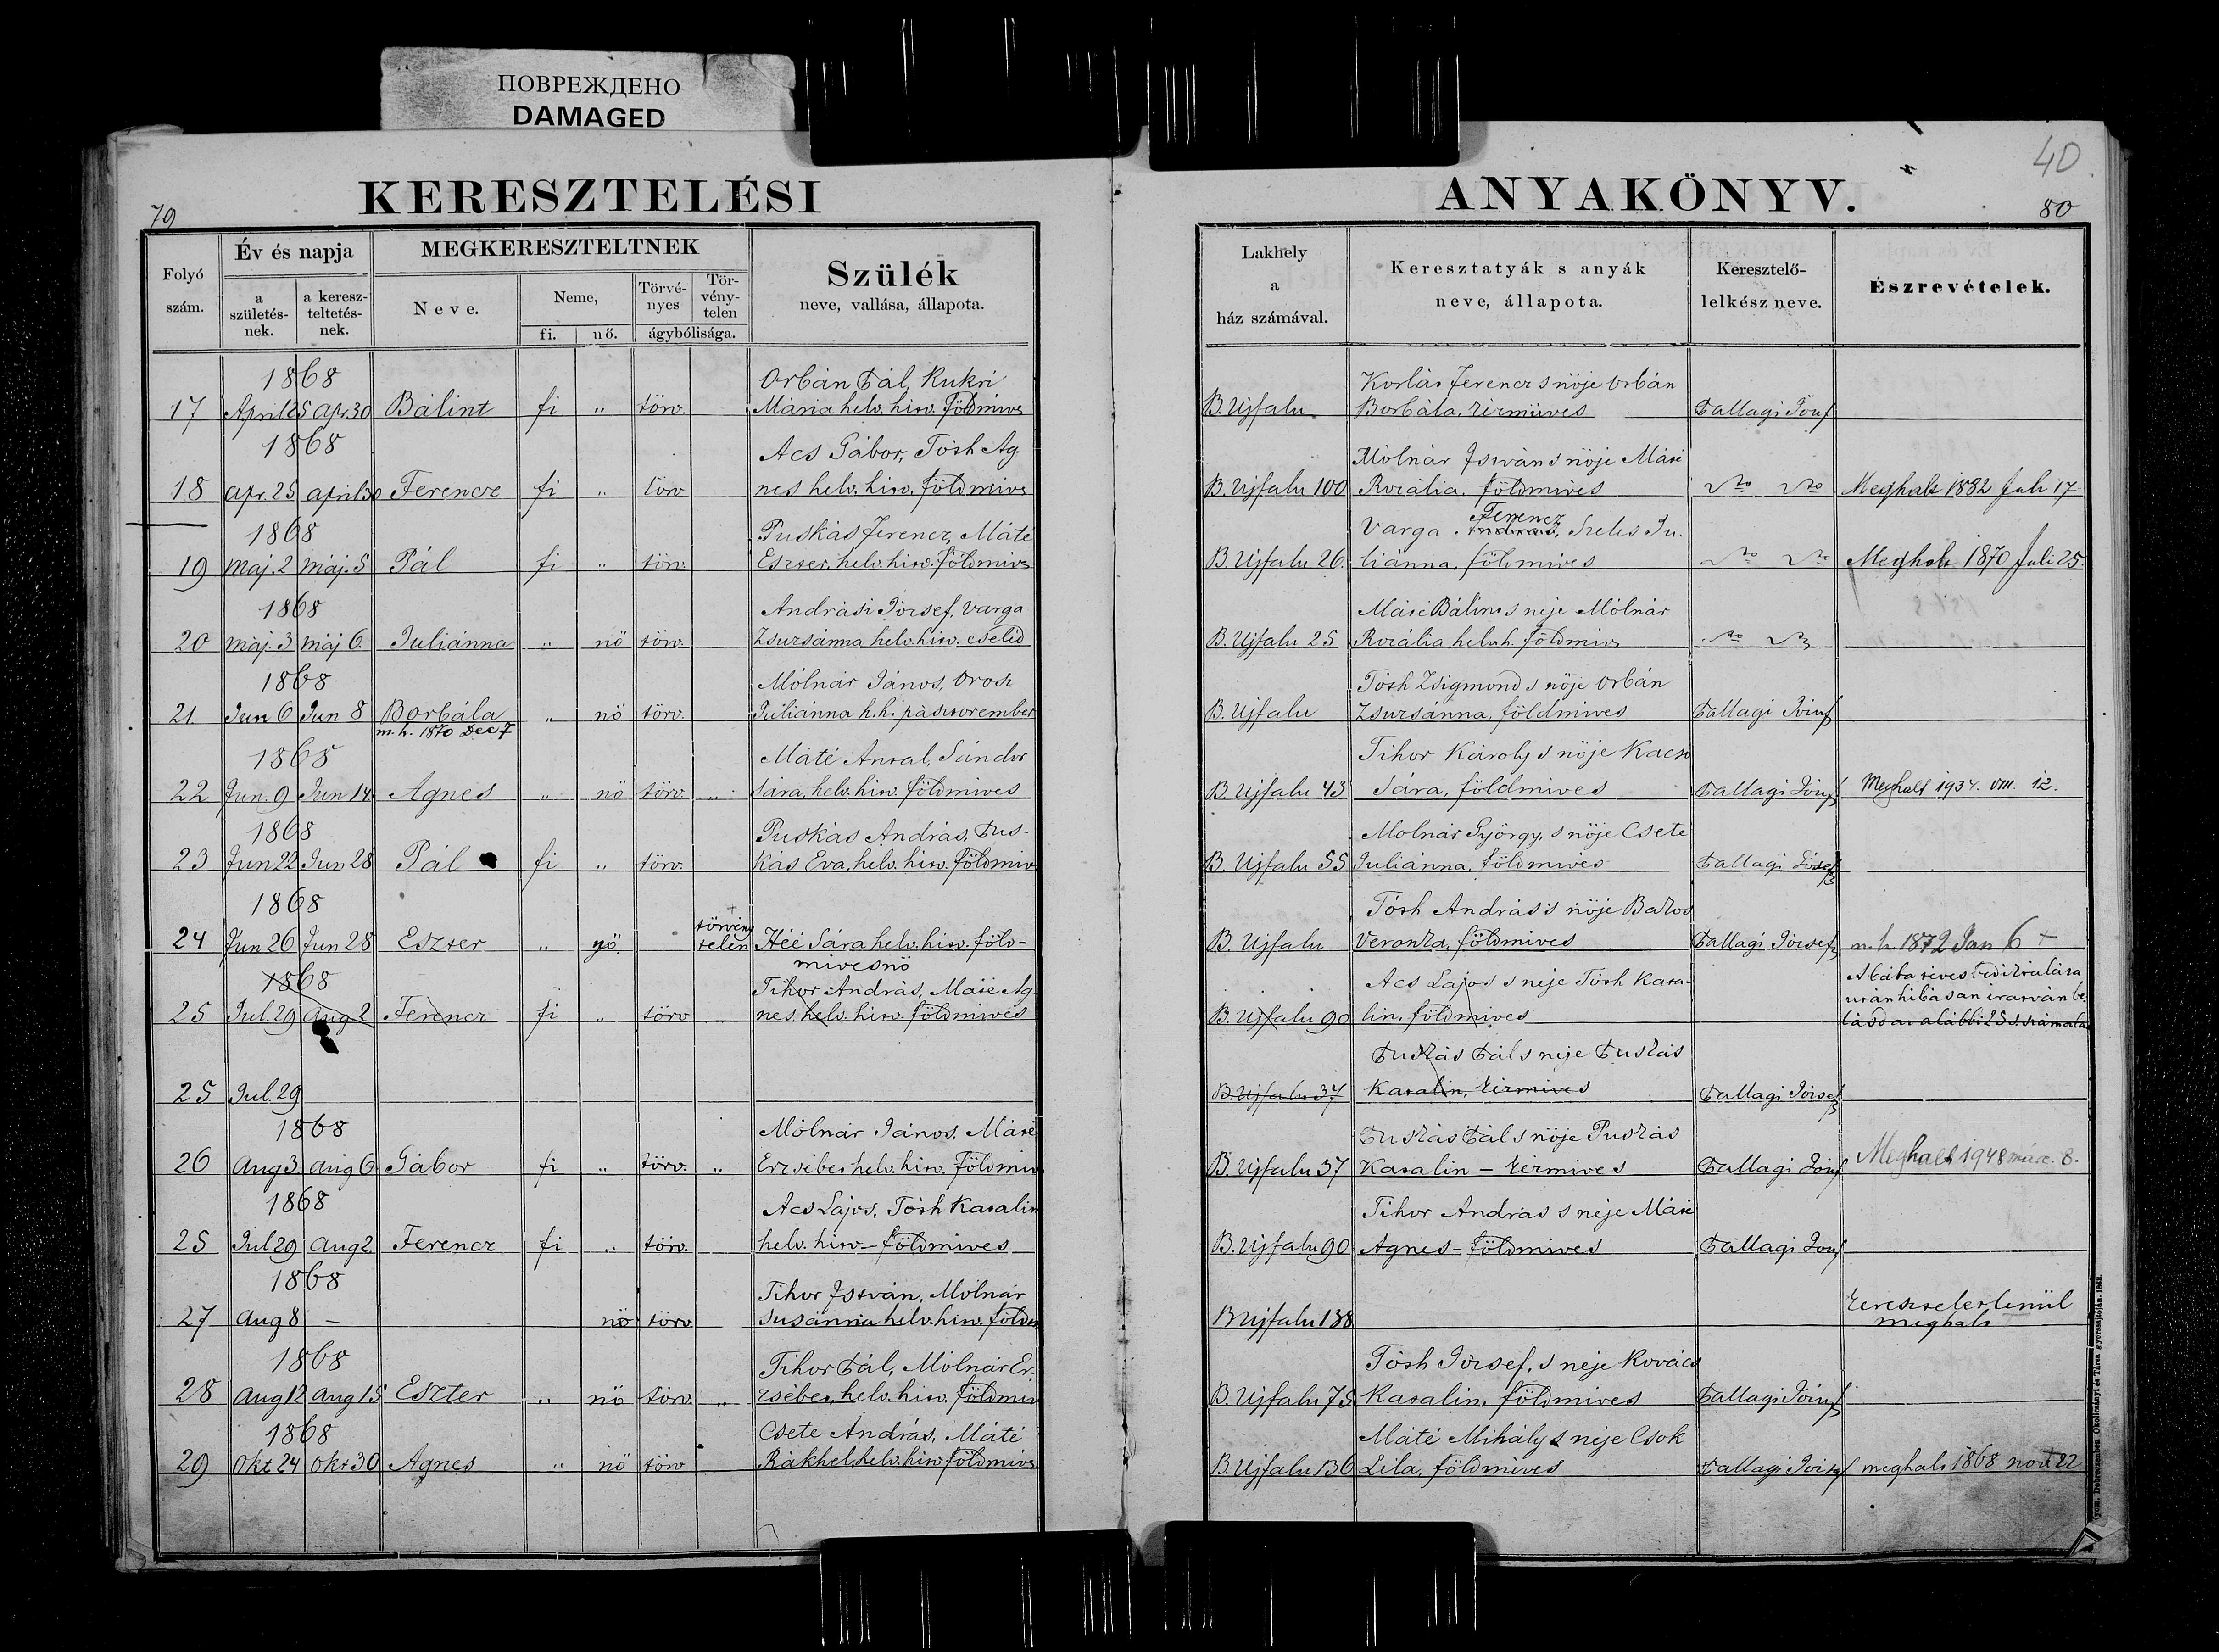 ПОВРЕЖДЕНО
DAMAGED
79
KERESZTELÉSI
Folyó szám.
Év és napja
a születés-nek.
a keresz-teltetés-nek.
MEGKERESZTELTNEK
Neve.
Neme,
fi.
nő.
Törvé-nyes
Tör-vény-telen
ágybólisága.
Szülék
neve, vallása, állapota.
1868
Orbán Pál, Kukri
17 April 25 apr. 30 Bálint fi „ törv. Mária helv. hitv. földmives
1868
Acs Gábor, Tóth Ag.
18 apr. 25 april 30 Ferencz fi „ törv nes helv. hitv. földmives
1868
Puskás Ferencz, Máté
19 Maj. 2 máj. 5 Pál fi „ törv. Eszter, helv. hitv. földmives
1868
Andrási József, Varga
20 máj. 3 máj 6. Juliánna „ nö törv. Zsuzsánna helv. hitv. cseléd
1868
Mólnár János, Orosz
21. Jun 6 Jun 8 Borbála „ nö törv. Juliánna h. h. pásztorember
m. h. 1870 Dec 7
1868
Máté Antal, Sándor
22 Jun. 9 Jun 14 Agnes „ nö törv. „ Sára, helv. hitv. földmives
1868
Puskás András, Pus-
23 Jun 22 Jun 28 Pál fi „ törv. kás Eva, helv. hitv. földmiv
1868
törvény
24 Jun 26 Jun 28 Eszter „ nö. telen Héé Sára helv. hitv. föld-
mivesnö
1868
Tihor András, Máté Ag-
25 Jul. 29 aug 2 Ferencz fi „ törv nes helv. hitv. földmives
25 Jul. 29
1868
Mólnár János, Máté
26 Aug 3 aug 6 Gábor fi „ törv. „ Erzsébet helv. hitv. földmiv
1868
Acs Lajos, Tóth Katalin
25 Jul 29 aug 2 Ferencz fi „ törv. helv. hitv – földmives
1868
Tihor István, Mólnár
27 aug 8 – nö törv. Susánna helv. hitv. földm
1868
Tihor Pál, Mólnár Er.
28 aug 12 aug 15 Eszter „ nö törv. „ zsébet, helv. hitv. földmiv
1868
Csete András, Máté
29 Okt 24 Okt 30 Agnes „ nö törv Rákhel, helv. hitv földmives
40
ANYAKÖNYV.
80
Lakhely a ház számával.
Keresztatyák s anyák
neve, állapota.
Keresztelő-
lelkész neve.
Észrevételek.
Korlát Ferencz s nöje Orbán
B. Ujfalu. Borbála, kézmüves Pallagi Józsf
Mólnár István s nöje Máté
B. Ujfalu 100 Rozália, földmives Meghalt 1882 Juli 17
Ferencz
Varga Szeles Ju.
B. Ujfalu 26. liánna, földmives Meghalt 1870 Juli 25.
Máté Bálint s neje Mólnár
B. Ujfalu 25 Rozália helv. h. földmiv
Tóth Zsigmond s nöje Orbán
B. Ujfalu Zsuzsánna, földmives Pallagi József
Tihor Károly s nöje Kacsó
B. Ujfalu 43 Sára, földmives Pallagi József Meghalt 1934. VIII. 12.
Molnár György, s nöje Csete
B. Ujfalu 55 Juliánna, földmives Pallagi József
Tóth András s nöje Bakos
B. Ujfalu Veronka, földmives Pallagi József m. h. 1872 Jan 6 +
Acs Lajos s neje Tóth Kata-
A bába téves
B. Ujfalu 90 lin, földmives
után hibásan iratván be
lásd az alábbi 25 s. szám alatt
Puskás Pál s neje Puskás
B. Ujfalu 37 Katalin, kézmives Pallagi József
Puskás Pál s nöje Puskás
B. Ujfalu 37 Katalin – kézmives Pallagi Józsf Meghalt 1948 márc. 8.
Tihor András s neje Máté
B. Ujfalu 90 Agnes – földmives Pallagi Józsf
B Ujfalu 138 Kereszteletlenül
meghalt
Tóth József, s neje Kovács
B. Ujfalu 75. Katalin, földmives Pallagi József
Máté Mihály s neje Csok
B. Ujfalu 136 Lila, földmives Pallagi József meghalt 1868 nov 22